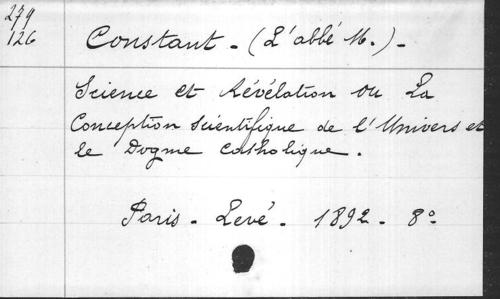 279
126
Constant. (L'abbé M.) -
Science et Révélation ou La
Conception scientifique de l'Univers et
le Dogme catholique.
Paris - Levé - 1892 - 8°